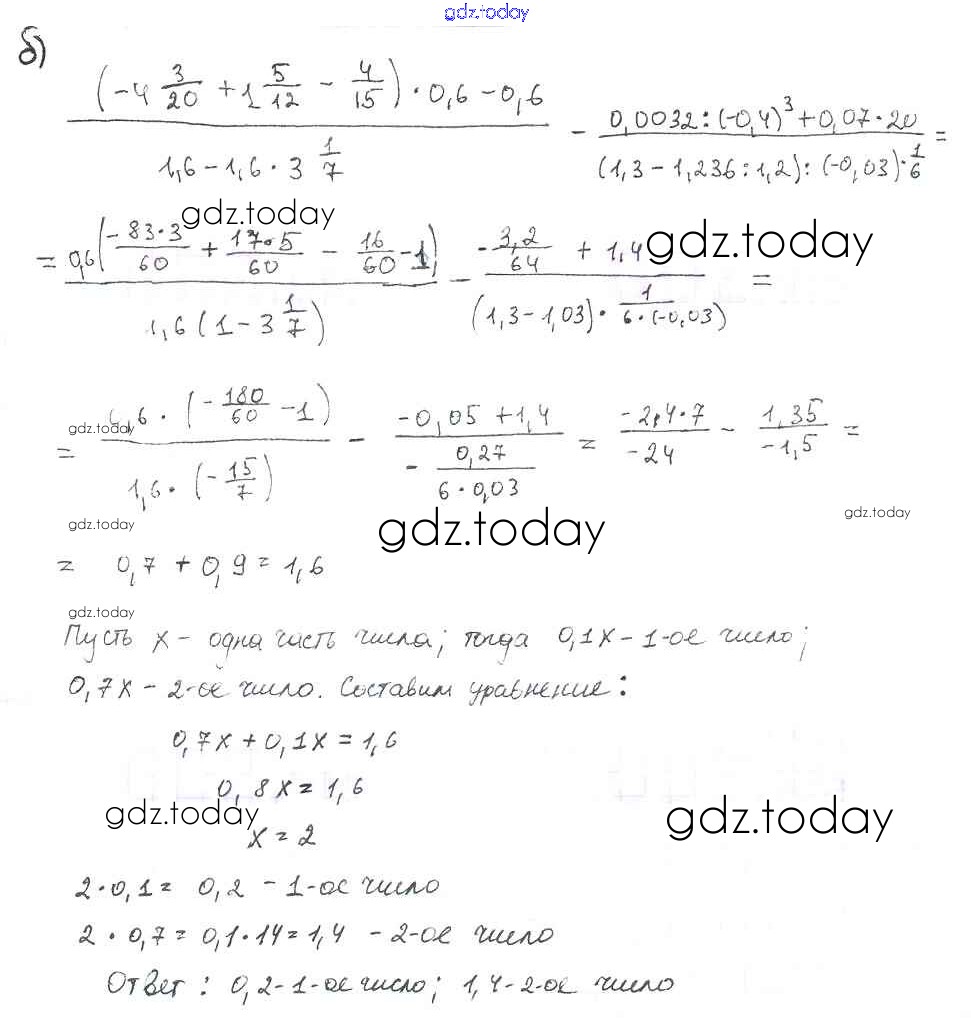 gdz.today
б)
(-4 3/20 + 1 5/12 - 4/15) · 0,6 - 0,6 / 1,6 - 1,6 · 3 1/7 - 0,0032 : (-0,4)³ + 0,07 · 20 / (1,3 - 1,236 : 1,2) : (-0,03) · 1/6 =
gdz.today
gdz.today
= 0,6(-83·3/60 + 17·5/60 - 16/60 - 1) / 1,6(1 - 3 1/7) - -3,2/64 + 1,4 / (1,3 - 1,03) · 1/6·(-0,03) =
gdz.today
= 0,6 · (-180/60 - 1) / 1,6 · (-15/7) - -0,05 + 1,4 / - 0,27/6·0,03 = -2,4·7/-24 - 1,35/-1,5 =
gdz.today
gdz.today
gdz.today
= 0,7 + 0,9 = 1,6
gdz.today
Пусть x - одна часть числа; тогда 0,1x - 1-ое число;
0,7x - 2-ое число. Составим уравнение:
0,7x + 0,1x = 1,6
0,8x = 1,6
gdz.today
gdz.today
x = 2
2·0,1 = 0,2 - 1-ое число
2 · 0,7 = 0,1·14 = 1,4 - 2-ое число
Ответ: 0,2 - 1-ое число; 1,4 - 2-ое число